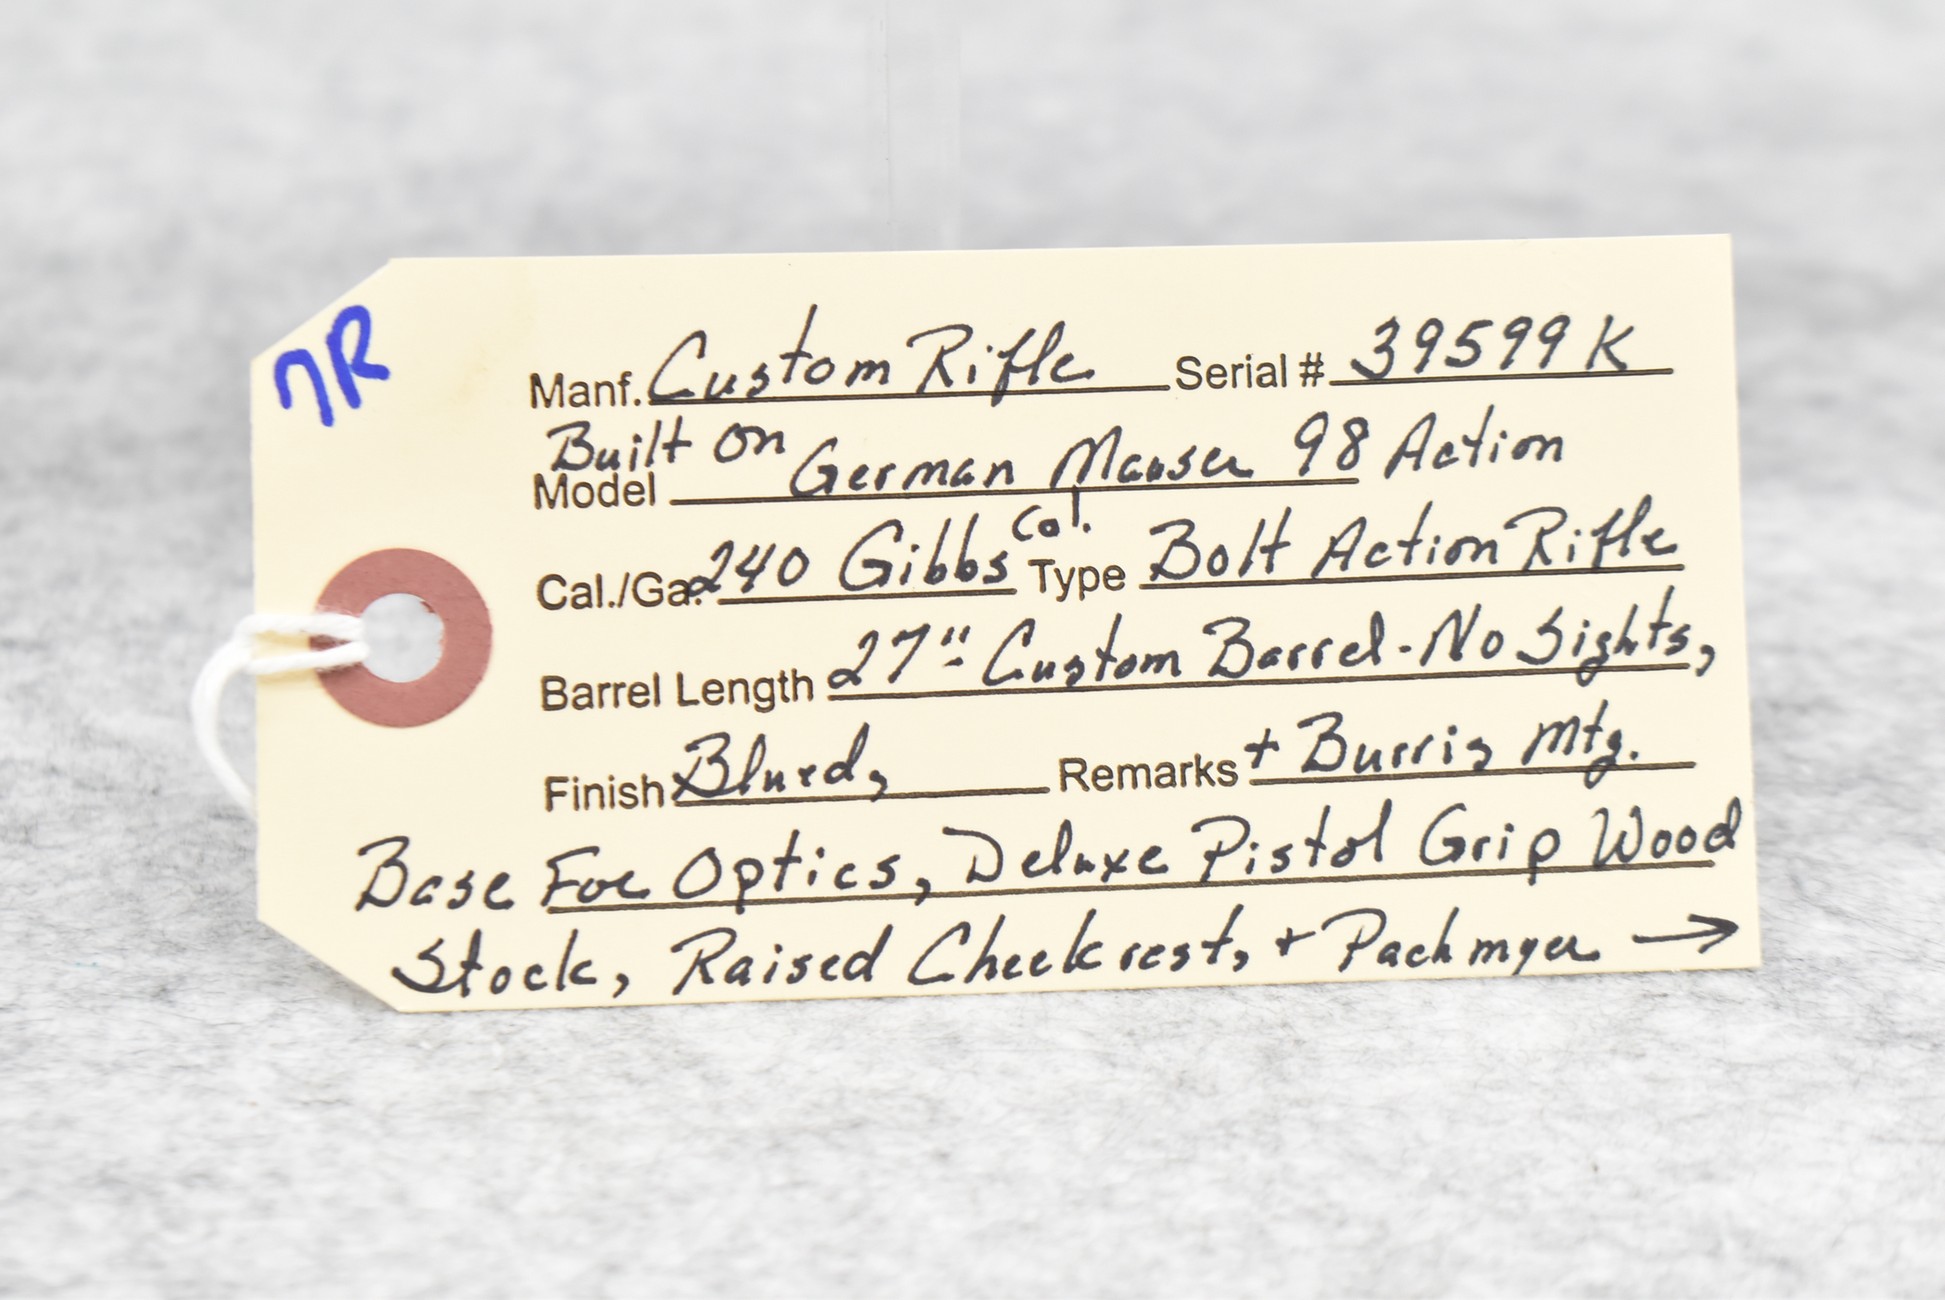 7R
Manf. Custom Rifle Serial # 39599K
Built On
Model German Mauser 98 Action
Cal./Ga. 240 Gibbs Cal. Type Bolt Action Rifle
Barrel Length 27" Custom Barrel - No Sights,
Finish Blued, Remarks + Burris Mtg.
Base For Optics, Deluxe Pistol Grip Wood
Stock, Raised Cheekrest, + Pachmyer →